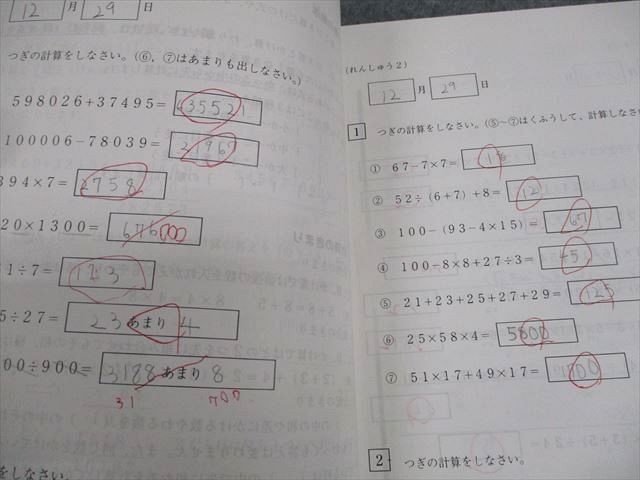 12 月 29 日
つぎの計算をしなさい。(⑥, ⑦はあまりも出しなさい。)
598026+37495= 635521
100006-78039= 21967
394×7= 2758
20×1300= 676000
1÷7=
5÷27= 23 あまり 4
00÷900= 3188 あまり 8
31 700
をしなさい。
(れんしゅう2)
12 月 29 日
1 つぎの計算をしなさい。(⑤~⑦はくふうして, 計算しなさ
① 67-7×7= 18
② 52÷(6+7)+8= 12
③ 100-(93-4×15)= 67
④ 100-8×8+27÷3= 45
⑤ 21+23+25+27+29= 125
⑥ 25×58×4= 5800
⑦ 51×17+49×17= 1700
2 つぎの計算をしなさい。